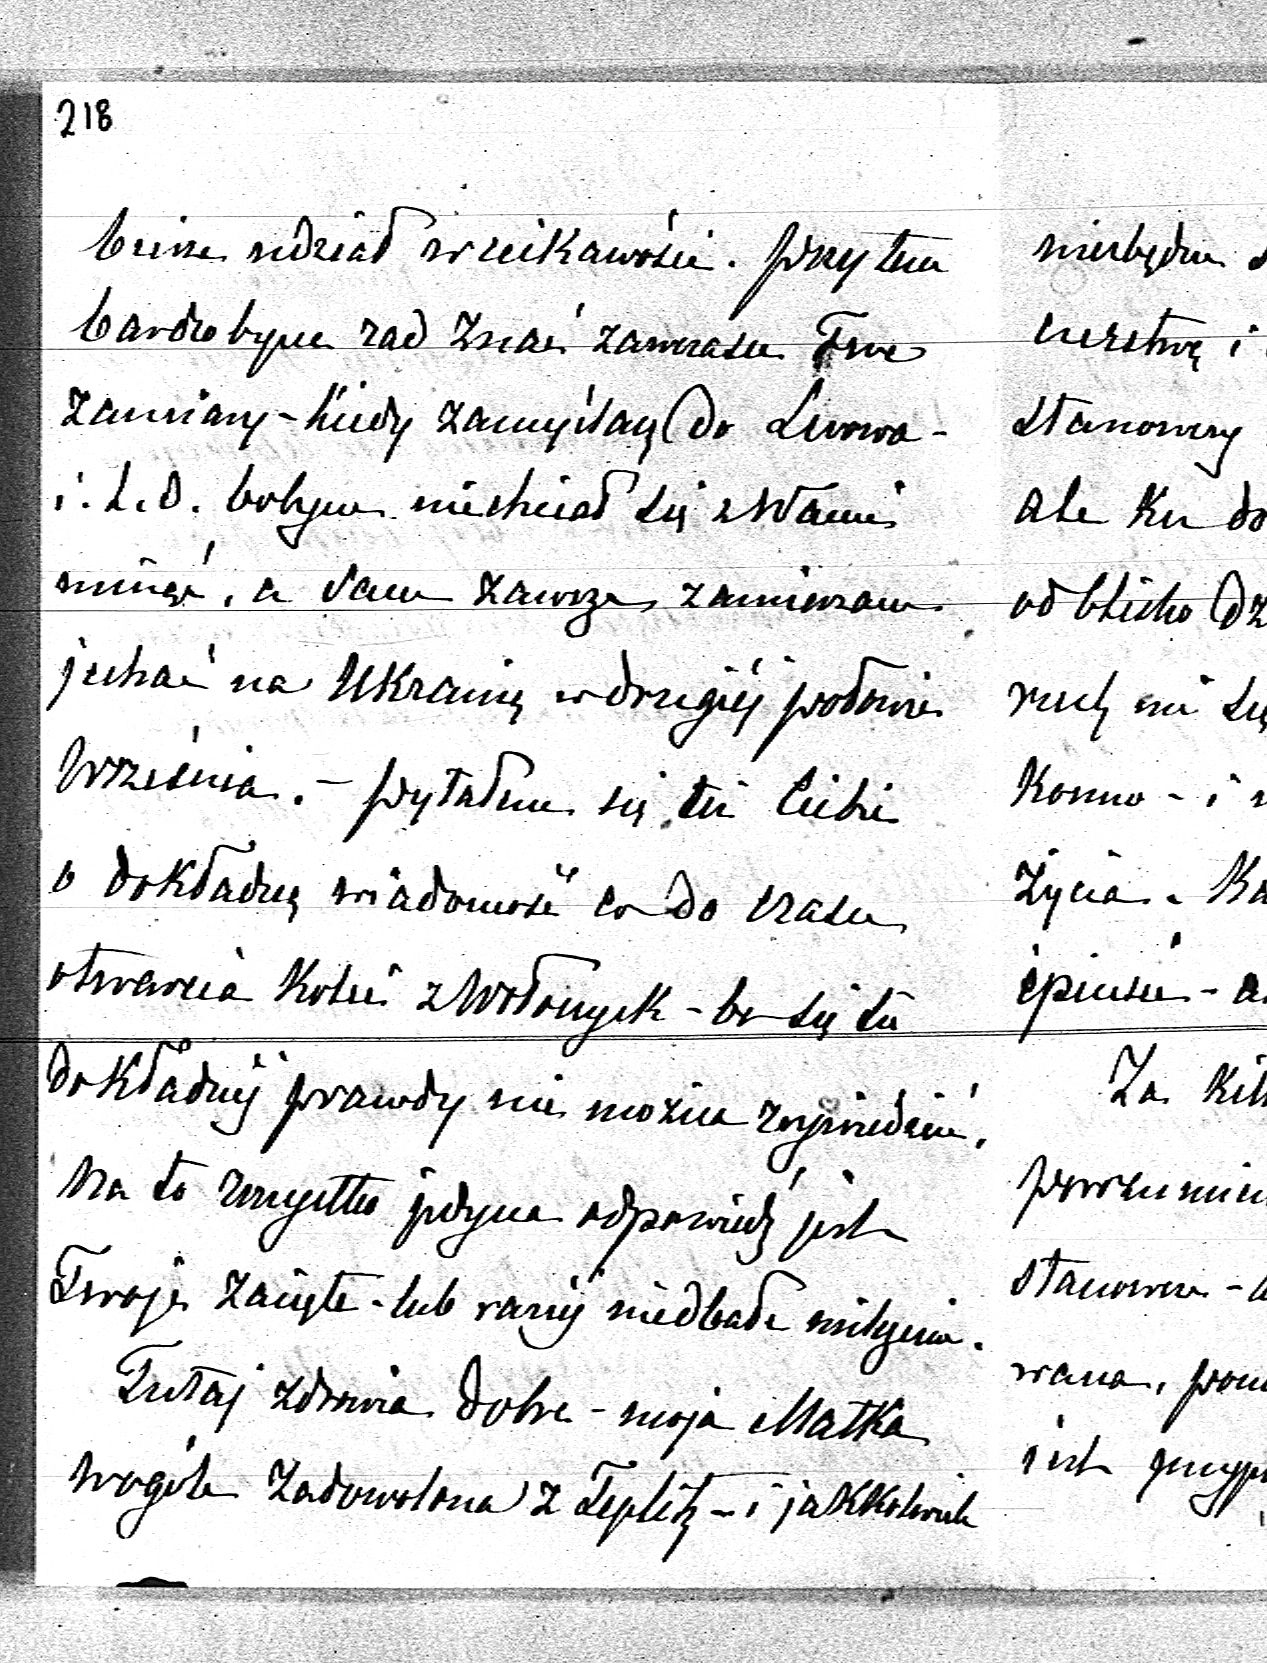 218
będzie udział w ciekawości. Przytem
bardzobym rad znać zawczasu Twe
zamiary - kiedy zamyślasz do Lwowa -
i t. d. bobym niechciał się z Wami
minąć, a sam zawsze zamierzam
jechać na Ukrainę w drugiéj połowie
Września. - Pytałem się też Ciebie
o dokładną wiadomość co do czasu
otwarcia kolei z Wołoczysk - bo się tu
dokładnéj prawdy nie można wywiedzieć.
Na to wszystko jedyna odpowiedź jest
Twoje zacięte - lub raczéj niedbałe milczenie.
Tutaj zdrowia dobre - moja Matka
wogóle zadowolona z Teplitz - i jakkolwiek
niezbędne
czerstwą i
stanowczy
ale ku
od blisko
ruch mi się
konno - i
życia. Ka
śpiesze - a
Za kil
porozumie
stanowcze - a
wana,
jest przyp